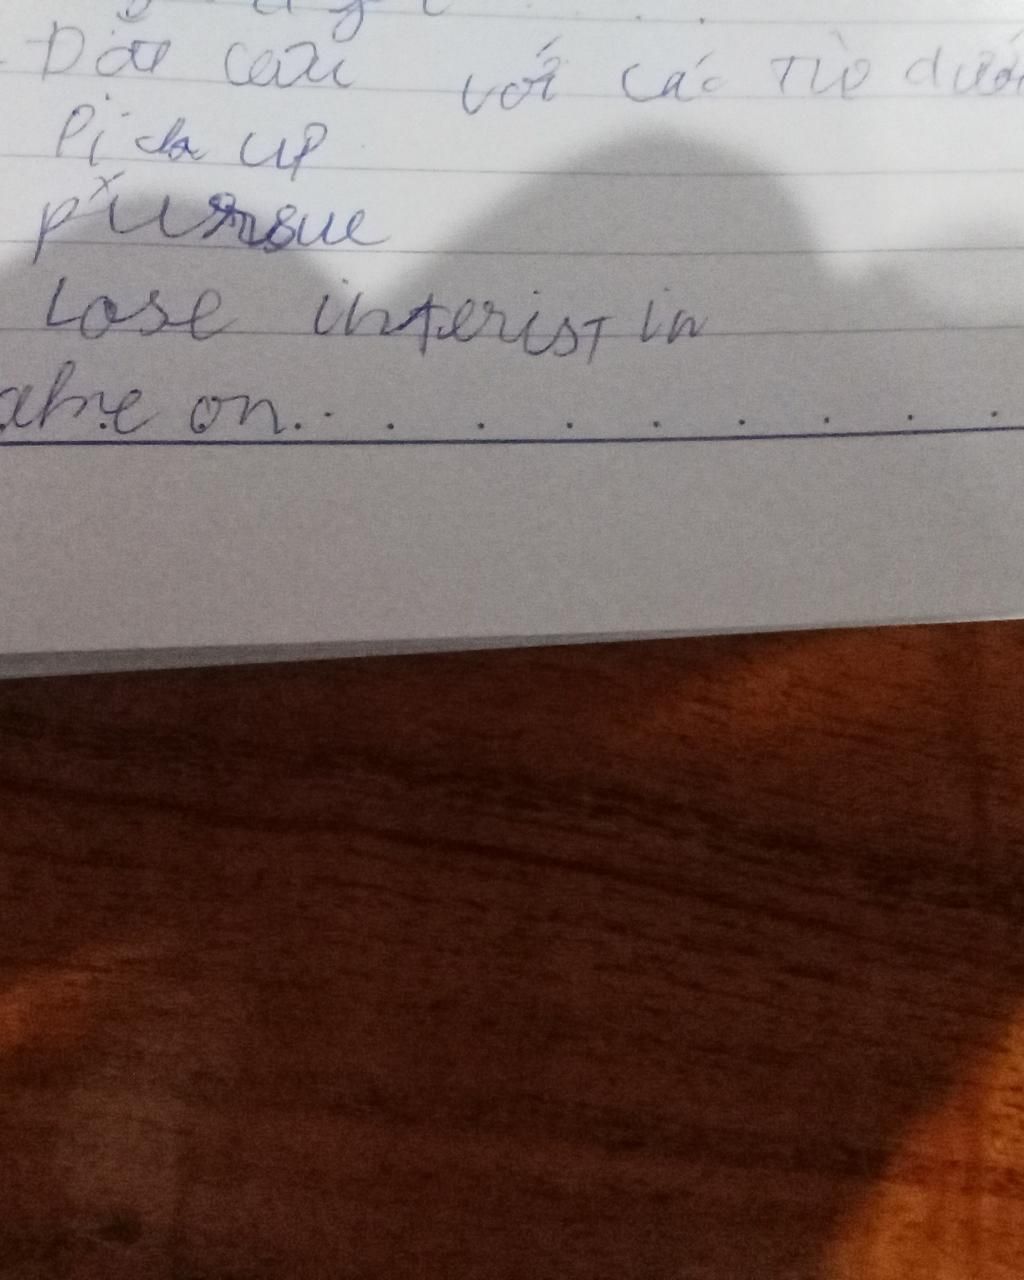 Đặt câu với các từ dưới
Pick up
pursue
Lose interist in
take on. . . . . . . . . .